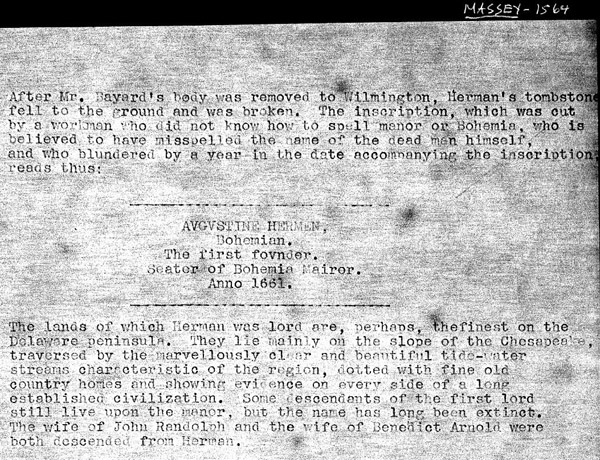 MASSEY - 1564
After Mr. Bayard's body was removed to Wilmington, Herman's tombstone
fell to the ground and was broken. The inscription, which was cut
by a workman who did not know how to spell manor or Bohemia, who is
believed to have misspelled the name of the dead man himself,
and who blundered by a year in the date accompanying the inscription,
reads thus:
AVGVSTINE HERMEN,
Bohemian.
The first fovnder.
Seater of Bohemia Mairor.
Anno 1661.
The lands of which Herman was lord are, perhaps, thefinest on the
Delaware peninsula. They lie mainly on the slope of the Chesapeake,
traversed by the marvellously clear and beautiful tide-water
streams characteristic of the region, dotted with fine old
country homes and showing evidence on every side of a long
established civilization. Some descendants of the first lord
still live upon the manor, but the name has long been extinct.
The wife of John Randolph and the wife of Benedict Arnold were
both descended from Herman.